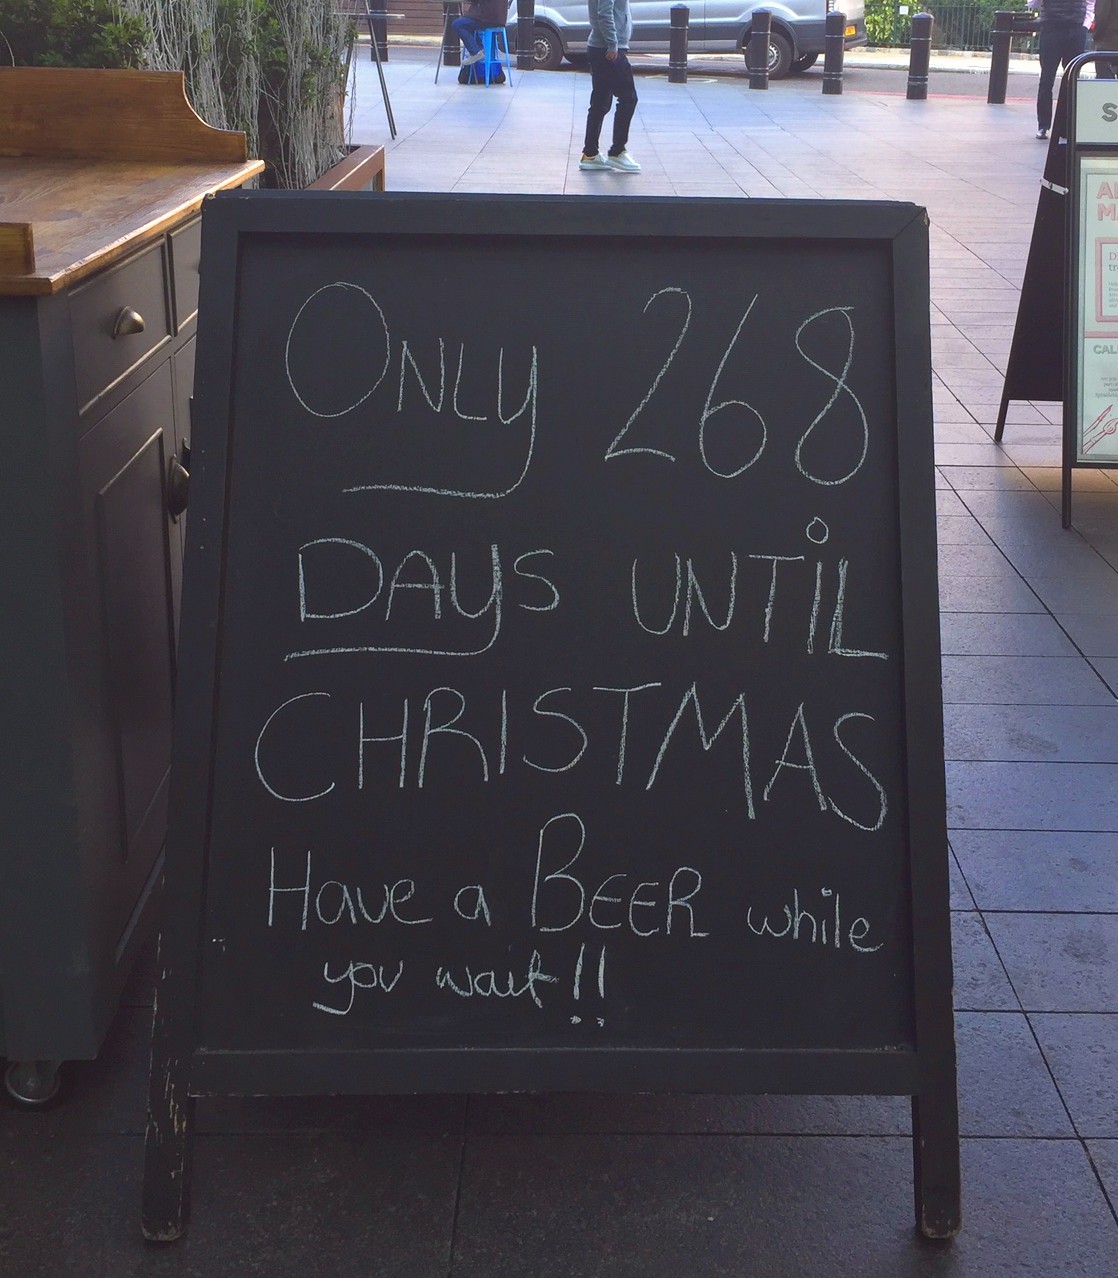 Only 268
DAYS UNTIL
CHRISTMAS
Have a BEER while
you wait!!